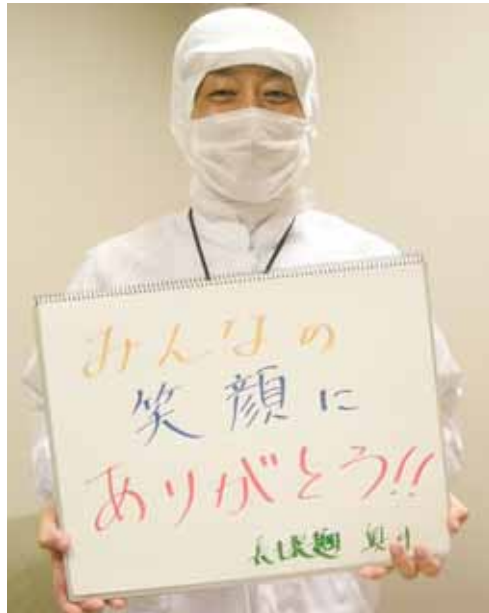 みんなの
笑顔に
ありがとう!!
製麺